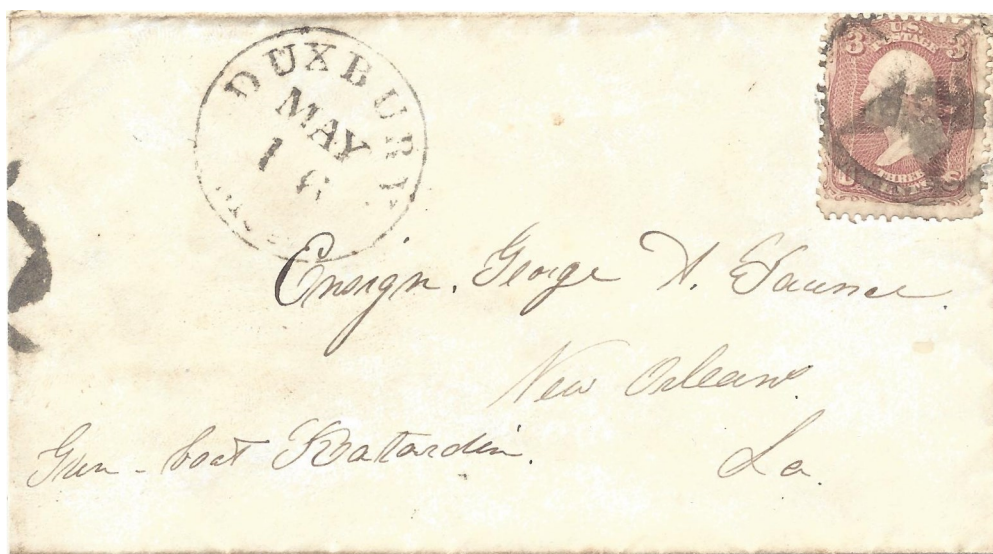 DUXBURY
MAY
16
3 U.S. 3
POSTAGE
Ensign. George A. Faunce.
New Orleans
Gun-boat Katardin.
La.